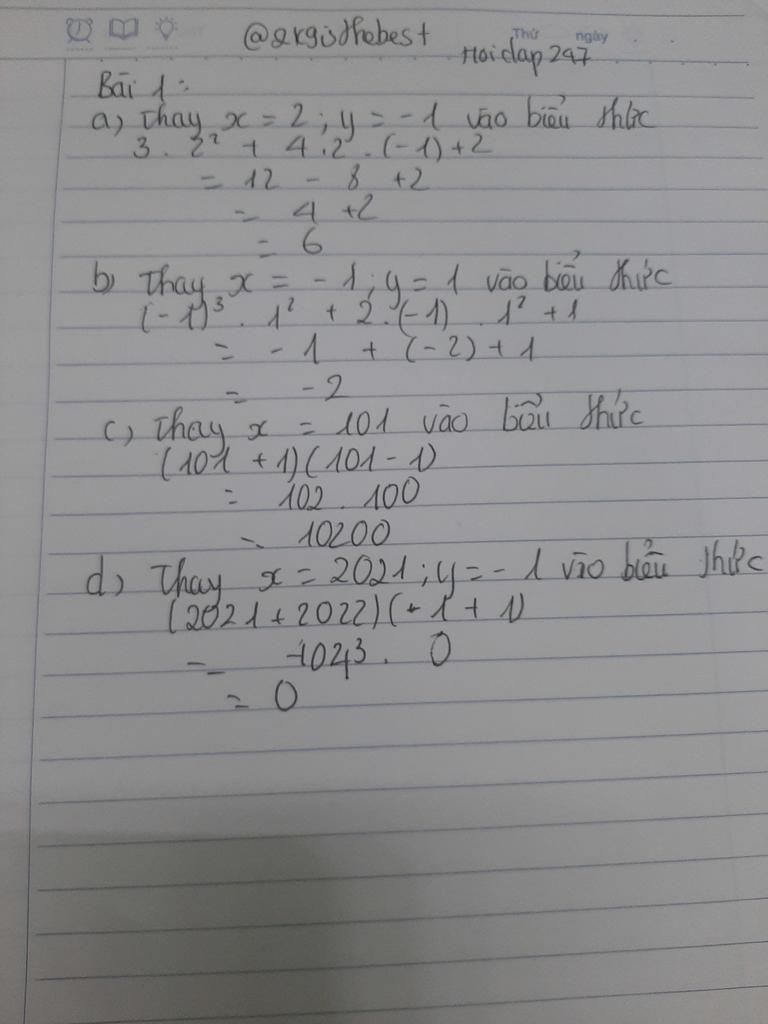 @srgisthebest
Thứ ngày
Hoidap247
Bài 1:
a) Thay x = 2 ; y = -1 vào biểu thức
3 . 2² + 4 . 2 . (-1) + 2
= 12 - 8 + 2
= 4 + 2
= 6
b) Thay x = -1 ; y = 1 vào biểu thức
(-1)³ . 1² + 2 . (-1) . 1² + 1
= -1 + (-2) + 1
= -2
c) Thay x = 101 vào biểu thức
(101 + 1)(101 - 1)
= 102 . 100
= 10200
d) Thay x = 2021 ; y = -1 vào biểu thức
(2021 + 2022)(-1 + 1)
= . 0
= 0